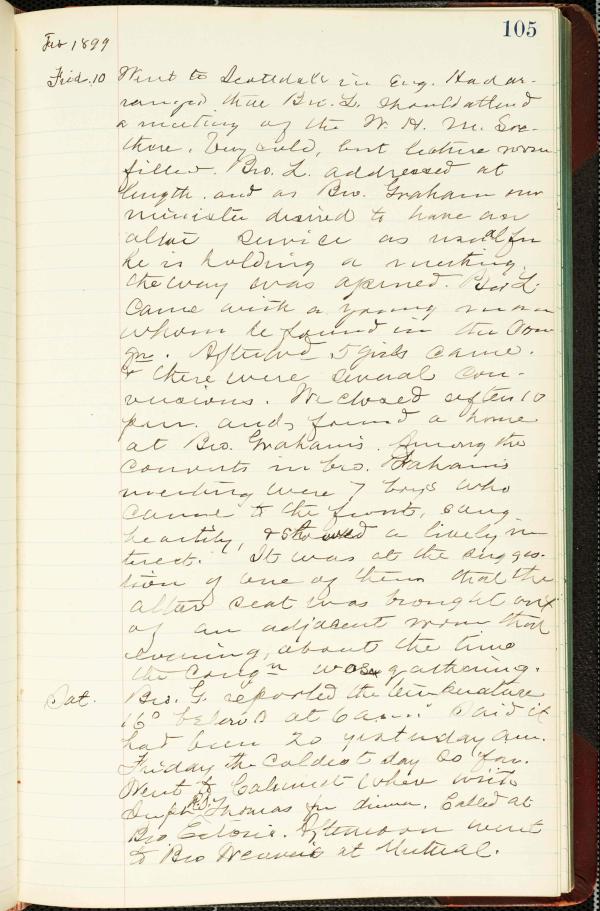 105
Feb 1899
Frid. 10 Went to Scottdale in Eng. Had ar-
ranged that Bro. L. should attend
a meeting of the W. H. M. Soc.
there. Very cold, but lecture room
filled. Bro. L. addressed at
length. and as Bro. Graham our
minister desired to have an
altar service as usual for
he is holding a meeting,
the way was opened. Bro. L.
came with a young man
whom he found in the Con-
gn. Afterwd 5 girls came.
& there were several con-
versions. We closed after 10
p.m. and found a home
at Bro. Graham's. Among the
converts in bro. Grahams
meeting were 7 boys who
came to the front, sang
heartily, & showed a lively in-
terest. It was at the sugges-
tion of one of them that the
altar seat was brought out
of an adjacent room that
evening, about the time
the congn was gathering.
Sat. Bro. G. reported the temperature
16° below 0 at 6 a.m. Said it
had been 20 yesterday a.m.
Friday the coldest day so far.
Went to Calumet where with
Supt Thomas for dinner. Called at
Bro. Afternoon went
to Bro at Mutual.